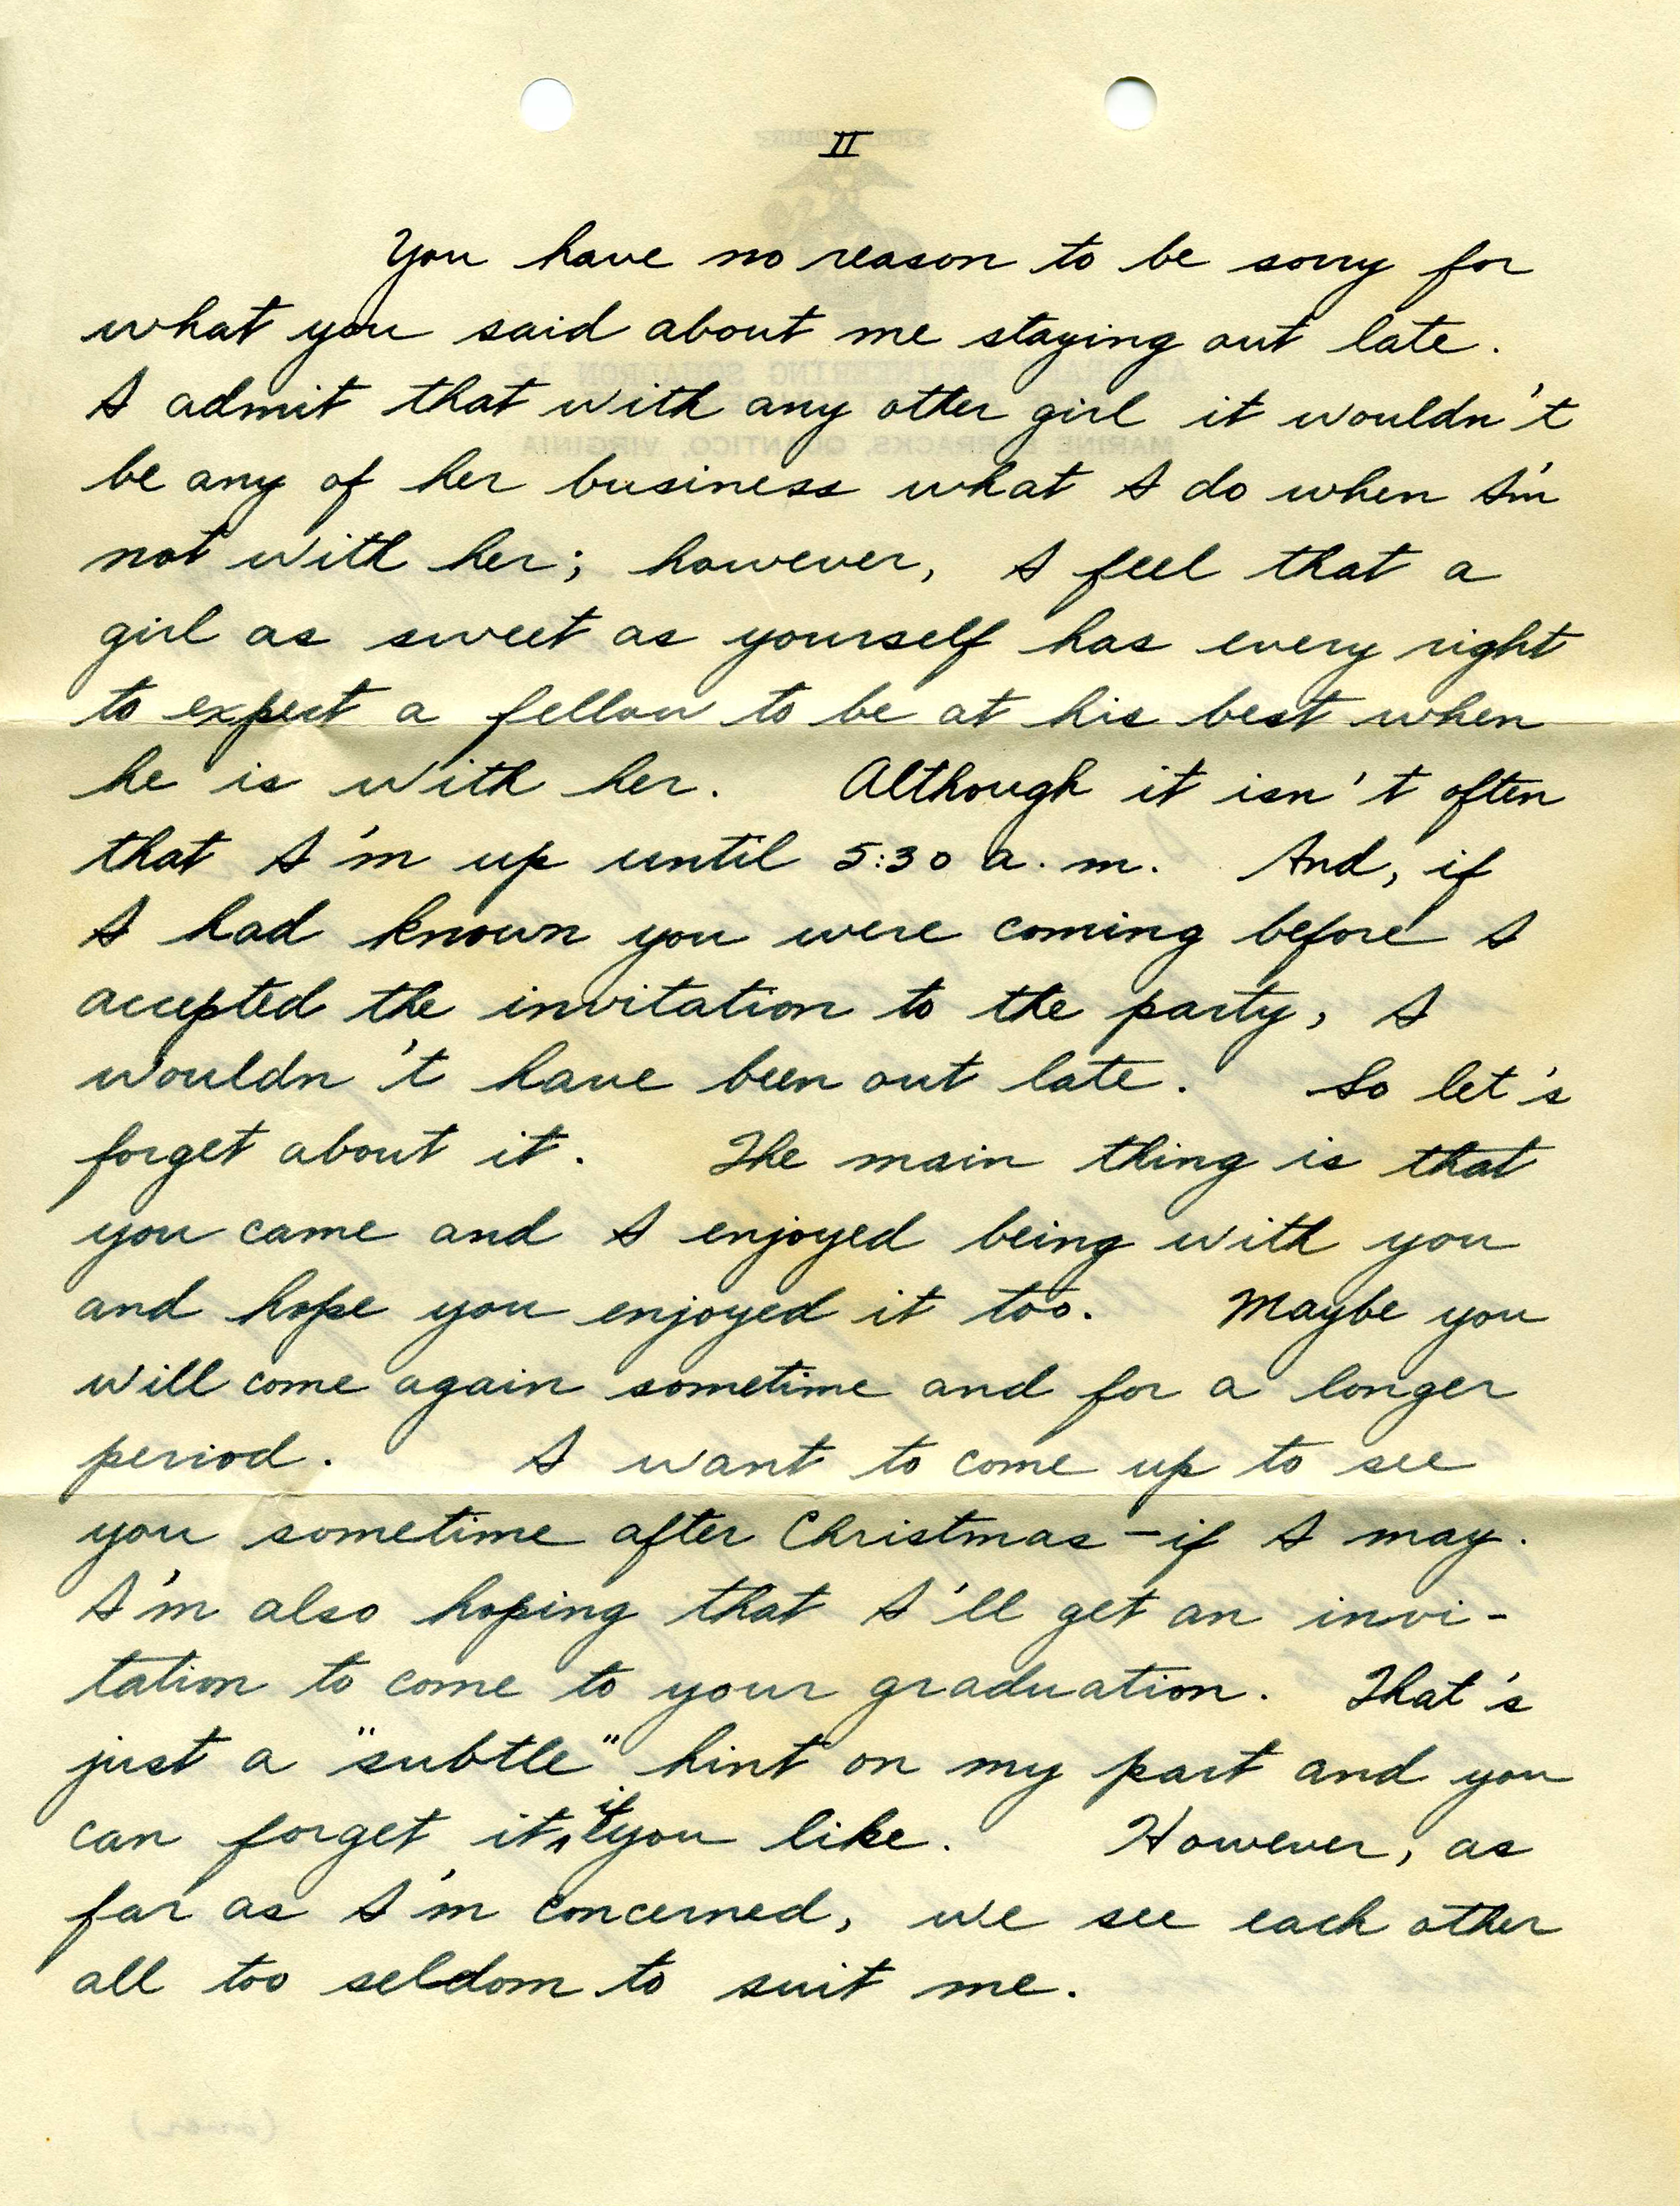 II
You have no reason to be sorry for
what you said about me staying out late.
I admit that with any other girl it wouldn't
be any of her business what I do when I'm
not with her; however, I feel that a
girl as sweet as yourself has every right
to expect a fellow to be at his best when
he is with her. Although it isn't often
that I'm up until 5:30 a.m. And, if
I had known you were coming before I
accepted the invitation to the party, I
wouldn't have been out late. So let's
forget about it. The main thing is that
you came and I enjoyed being with you
and hope you enjoyed it too. Maybe you
will come again sometime and for a longer
period. I want to come up to see
you sometime after Christmas – if I may.
I'm also hoping that I'll get an invi-
tation to come to your graduation. That's
just a "subtle" hint on my part and you
can forget it if you like. However, as
far as I'm concerned, we see each other
all too seldom to suit me.